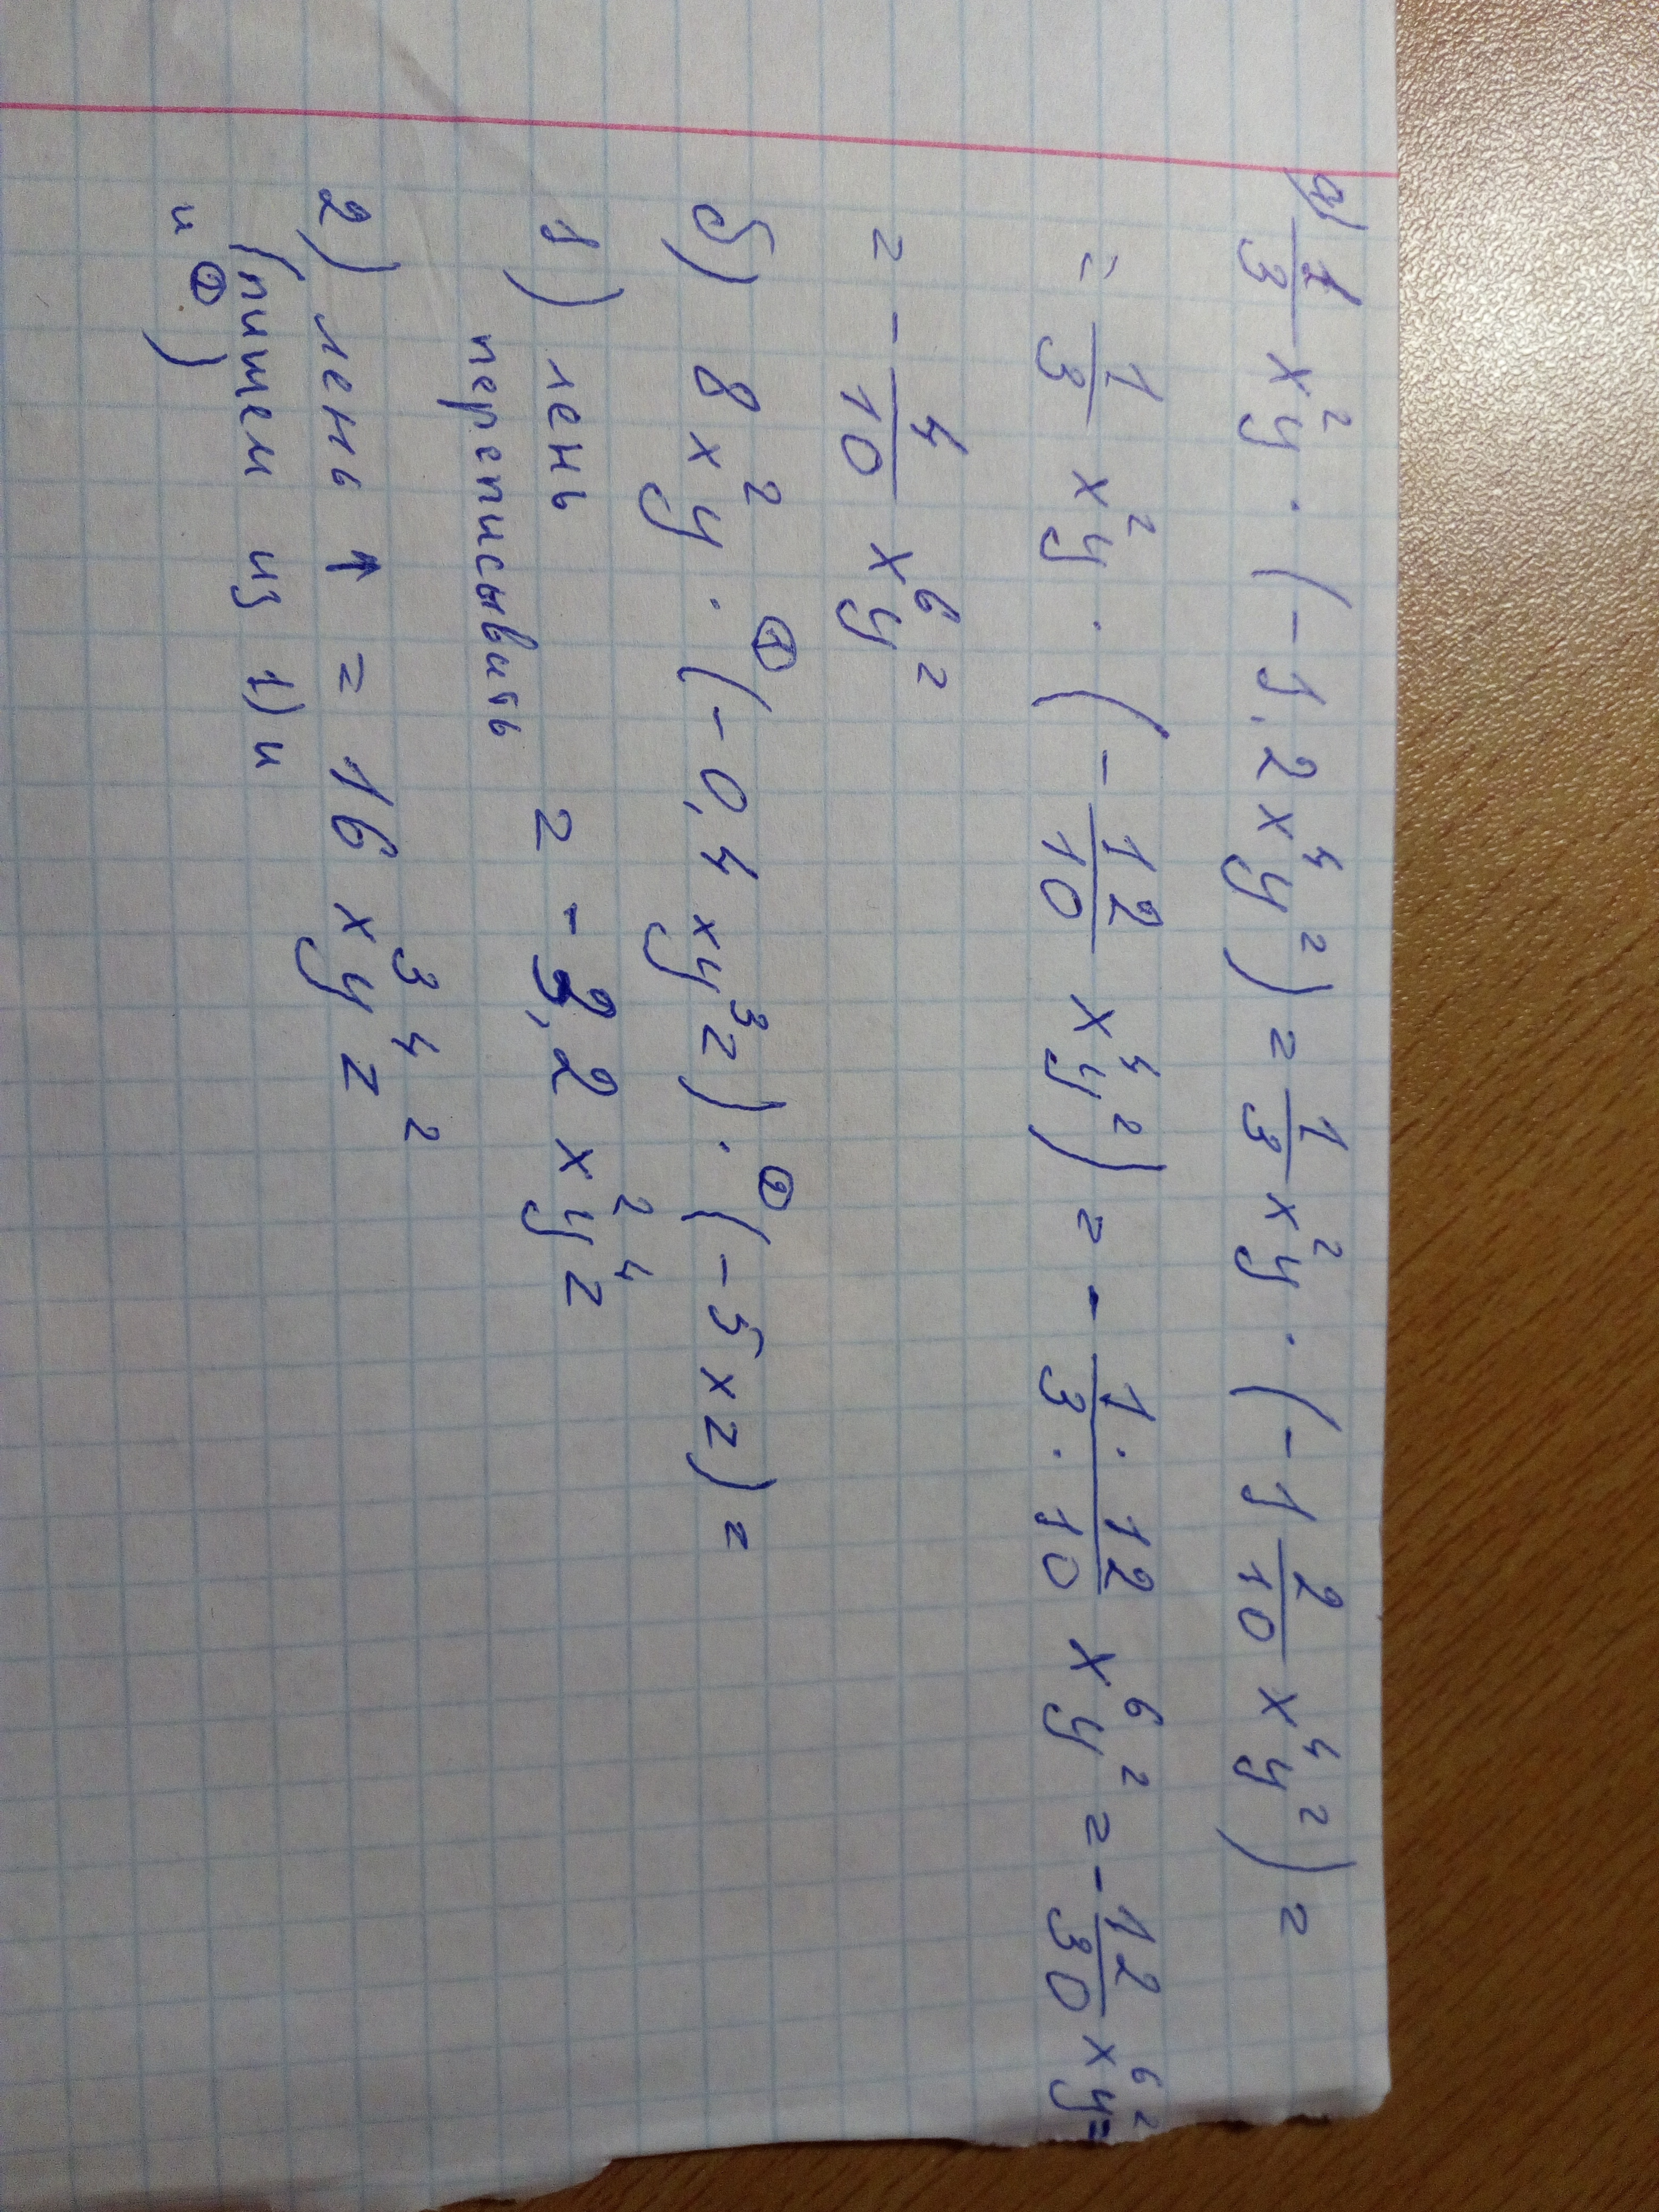 а) 1/3 x²y · (-1,2x⁴y²) = 1/3 x²y · (-1 2/10 x⁴y²) =
= 1/3 x²y · (- 12/10 x⁴y²) = - 1·12/3·10 x⁶y² = - 12/30 x⁶y² =
= - 4/10 x⁶y²
б) 8x²y · ① (-0,4xy³z) · ② (-5xz) =
1) лень переписывать = -3,2x²y⁴z
2) лень ↑ = 16x³y⁴z²
(пишем из 1) и
и ②)